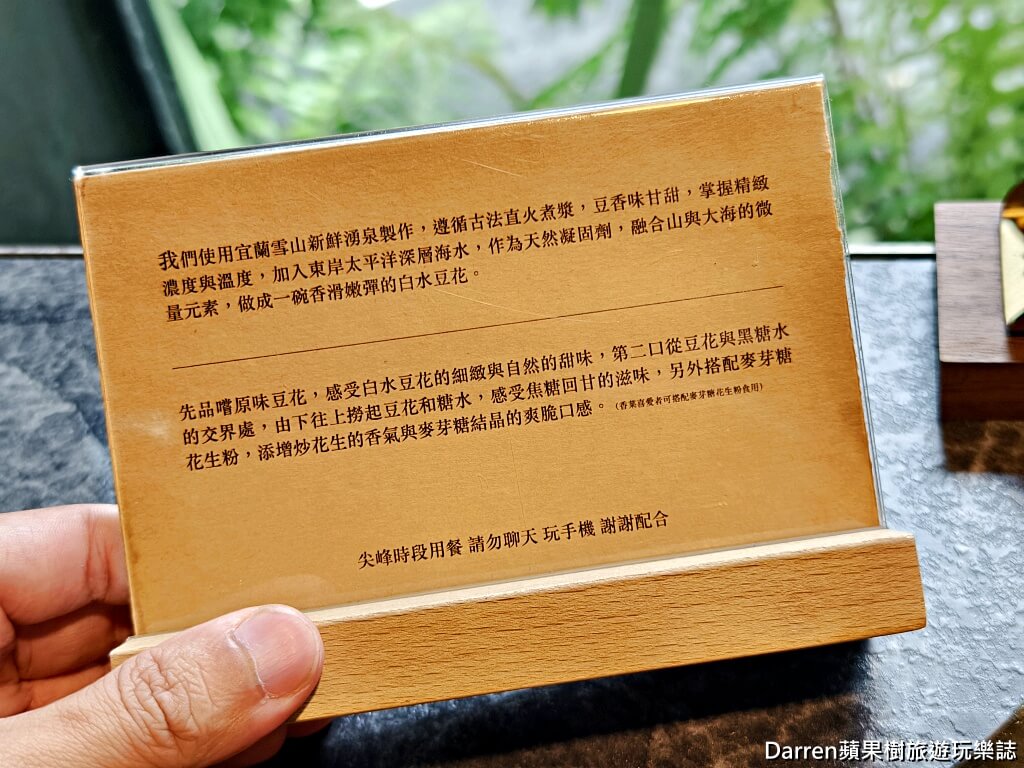 我們使用宜蘭雪山新鮮湧泉製作，遵循古法直火煮漿，豆香味甘甜，掌握精緻
濃度與溫度，加入東岸太平洋深層海水，作為天然凝固劑，融合山與大海的微
量元素，做成一碗香滑嫩彈的白水豆花。
先品嚐原味豆花，感受白水豆花的細緻與自然的甜味，第二口從豆花與黑糖水
的交界處，由下往上撈起豆花和糖水，感受焦糖回甘的滋味，另外搭配麥芽糖
花生粉，添增炒花生的香氣與麥芽糖結晶的爽脆口感。（香菜喜愛者可搭配麥芽糖花生粉食用）
尖峰時段用餐 請勿聊天 玩手機 謝謝配合
Darren蘋果樹旅遊玩樂誌